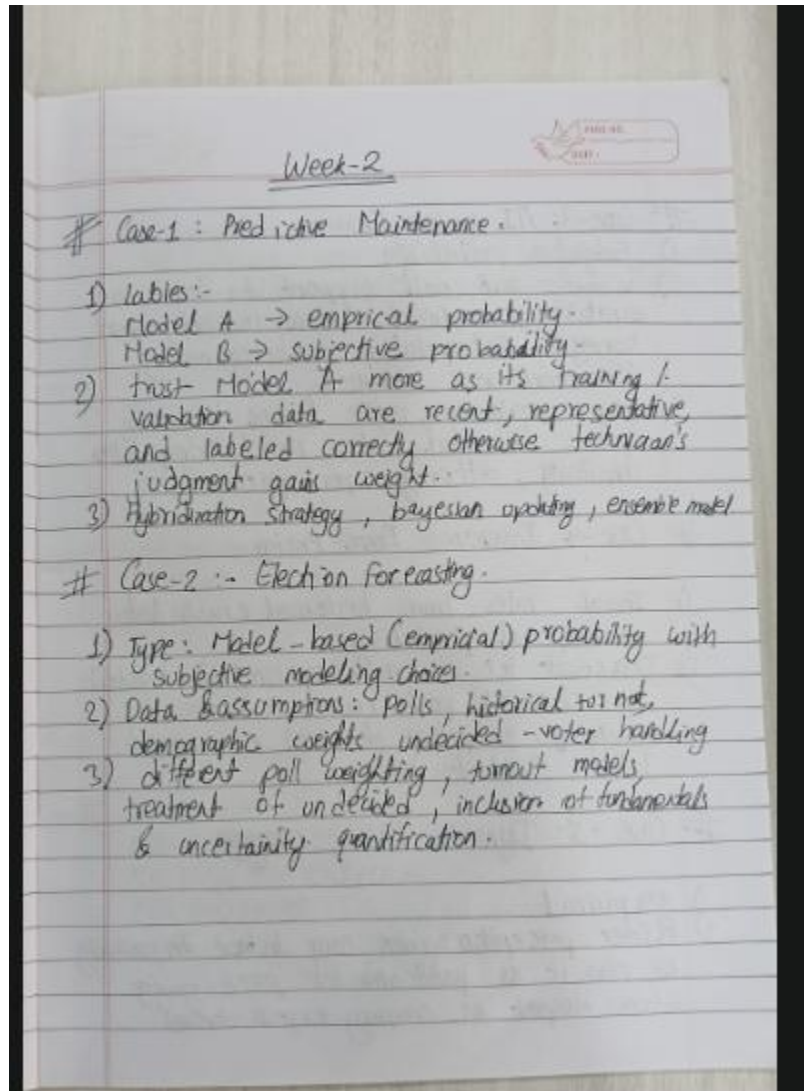 PAGE NO.
DATE:
Week-2
# Case-1 : Predictive Maintenance.
1) lables:-
Model A → emprical probability.
Model B → subjective probability.
2) trust Model A more as its training /
validation data are recent, representative,
and labeled correctly otherwise technician's
judgment gains weight.
3) Hybridization strategy, bayesian updating, ensemble model
# Case-2 :- Election forecasting.
1) Type: Model-based (emprical) probability with
subjective modeling choices.
2) Data & assumptions: polls, historical turnout,
demographic weights undecided-voter handling
3) different poll weighting, turnout models,
treatment of undecided, inclusion of fundamentals
& uncertainity quantification.